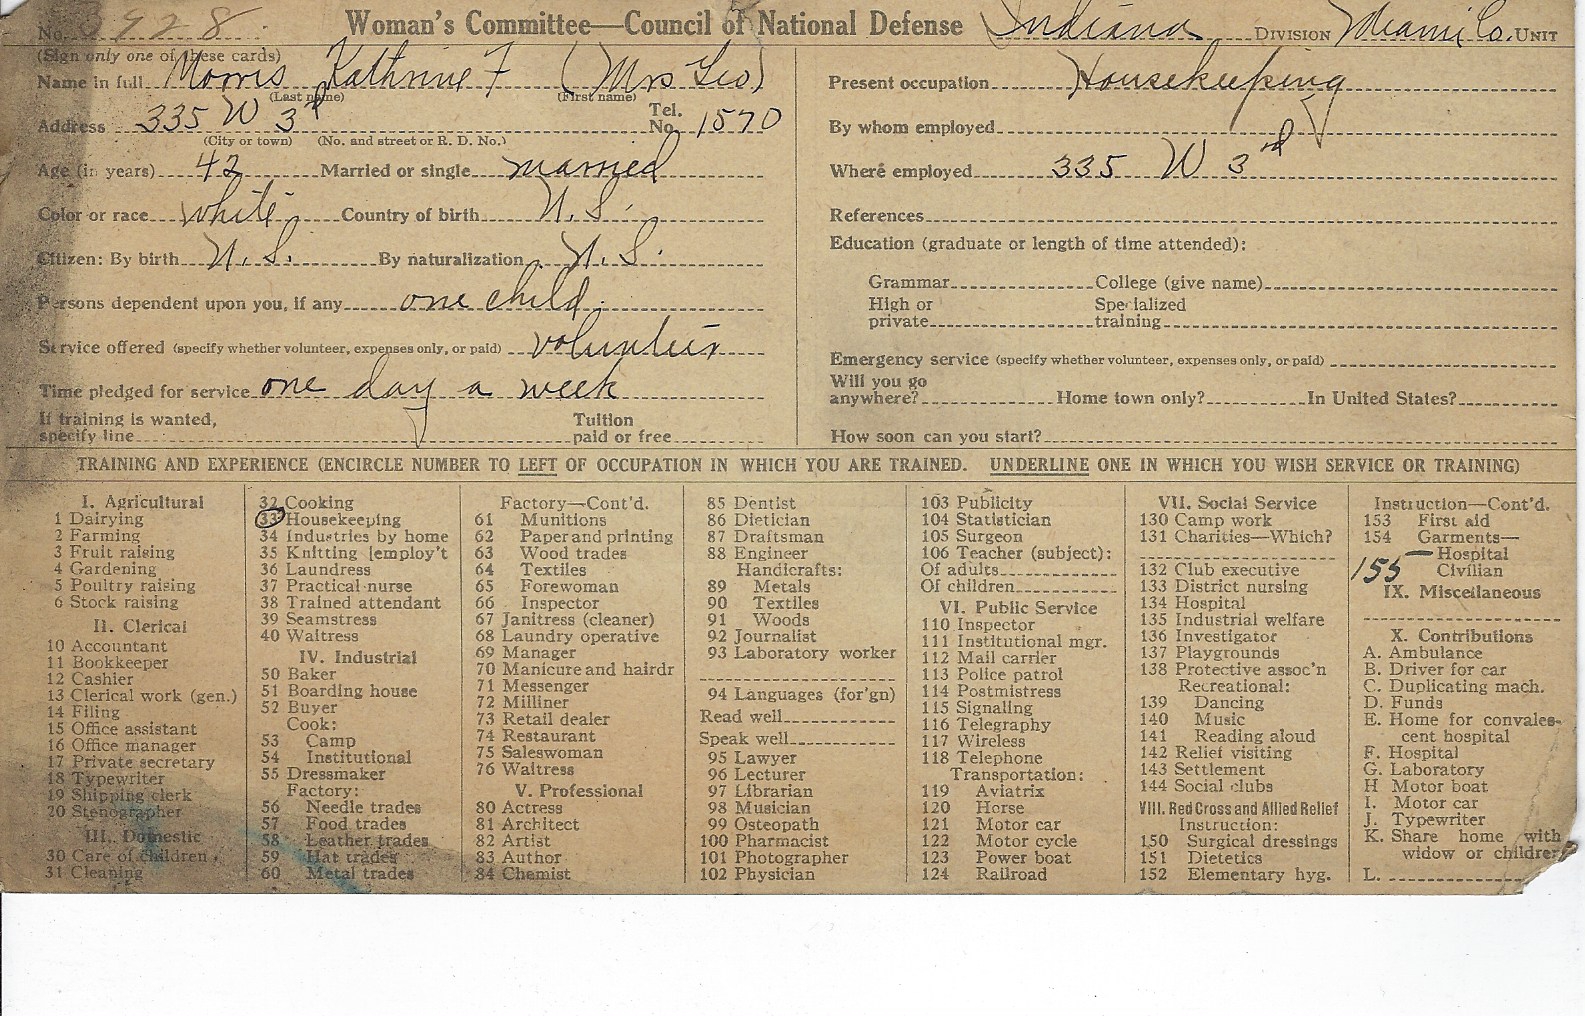 No. 3928 Woman's Committee—Council of National Defense Indiana DIVISION Miami Co. UNIT
(Sign only one of these cards)
Name in full Morris Kathrine F (Mrs Geo)
(Last name) (First name)
Address 335 W 3rd Tel. No. 1570
(City or town) (No. and street or R. D. No.)
Age (in years) 42 Married or single married
Color or race white Country of birth U.S.
Citizen: By birth U.S. By naturalization U.S.
Persons dependent upon you, if any one child.
Service offered (specify whether volunteer, expenses only, or paid) volunteer
Time pledged for service one day a week
If training is wanted,
specify line
Tuition
paid or free
Present occupation Housekeeping
By whom employed
Where employed 335 W 3rd
References
Education (graduate or length of time attended):
Grammar College (give name)
High or
private
Specialized
training
Emergency service (specify whether volunteer, expenses only, or paid)
Will you go
anywhere? Home town only? In United States?
How soon can you start?
TRAINING AND EXPERIENCE (ENCIRCLE NUMBER TO LEFT OF OCCUPATION IN WHICH YOU ARE TRAINED. UNDERLINE ONE IN WHICH YOU WISH SERVICE OR TRAINING)
I. Agricultural
1 Dairying
2 Farming
3 Fruit raising
4 Gardening
5 Poultry raising
6 Stock raising
II. Clerical
10 Accountant
11 Bookkeeper
12 Cashier
13 Clerical work (gen.)
14 Filing
15 Office assistant
16 Office manager
17 Private secretary
18 Typewriter
19 Shipping clerk
20 Stenographer
III. Domestic
30 Care of children
31 Cleaning
32 Cooking
33 Housekeeping
34 Industries by home
35 Knitting [employ't
36 Laundress
37 Practical nurse
38 Trained attendant
39 Seamstress
40 Waitress
IV. Industrial
50 Baker
51 Boarding house
52 Buyer
Cook:
53 Camp
54 Institutional
55 Dressmaker
Factory:
56 Needle trades
57 Food trades
58 Leather trades
59 Hat trades
60 Metal trades
Factory—Cont'd.
61 Munitions
62 Paper and printing
63 Wood trades
64 Textiles
65 Forewoman
66 Inspector
67 Janitress (cleaner)
68 Laundry operative
69 Manager
70 Manicure and hairdr
71 Messenger
72 Milliner
73 Retail dealer
74 Restaurant
75 Saleswoman
76 Waitress
V. Professional
80 Actress
81 Architect
82 Artist
83 Author
84 Chemist
85 Dentist
86 Dietician
87 Draftsman
88 Engineer
Handicrafts:
89 Metals
90 Textiles
91 Woods
92 Journalist
93 Laboratory worker
94 Languages (for'gn)
Read well
Speak well
95 Lawyer
96 Lecturer
97 Librarian
98 Musician
99 Osteopath
100 Pharmacist
101 Photographer
102 Physician
103 Publicity
104 Statistician
105 Surgeon
106 Teacher (subject):
Of adults
Of children
VI. Public Service
110 Inspector
111 Institutional mgr.
112 Mail carrier
113 Police patrol
114 Postmistress
115 Signaling
116 Telegraphy
117 Wireless
118 Telephone
Transportation:
119 Aviatrix
120 Horse
121 Motor car
122 Motor cycle
123 Power boat
124 Railroad
VII. Social Service
130 Camp work
131 Charities—Which?
132 Club executive
133 District nursing
134 Hospital
135 Industrial welfare
136 Investigator
137 Playgrounds
138 Protective assoc'n
Recreational:
139 Dancing
140 Music
141 Reading aloud
142 Relief visiting
143 Settlement
144 Social clubs
VIII. Red Cross and Allied Relief
Instruction:
150 Surgical dressings
151 Dietetics
152 Elementary hyg.
Instruction—Cont'd.
153 First aid
154 Garments—
Hospital
155 Civilian
IX. Miscellaneous
X. Contributions
A. Ambulance
B. Driver for car
C. Duplicating mach.
D. Funds
E. Home for convales-
cent hospital
F. Hospital
G. Laboratory
H Motor boat
I. Motor car
J. Typewriter
K. Share home with
widow or children
L.